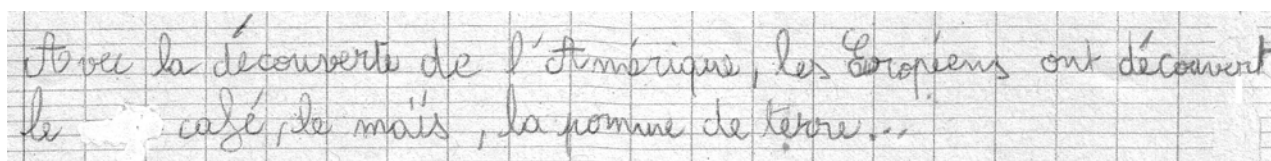 Avec la découverte de l'Amérique, les Européens ont découvert
le café, le maïs, la pomme de terre...